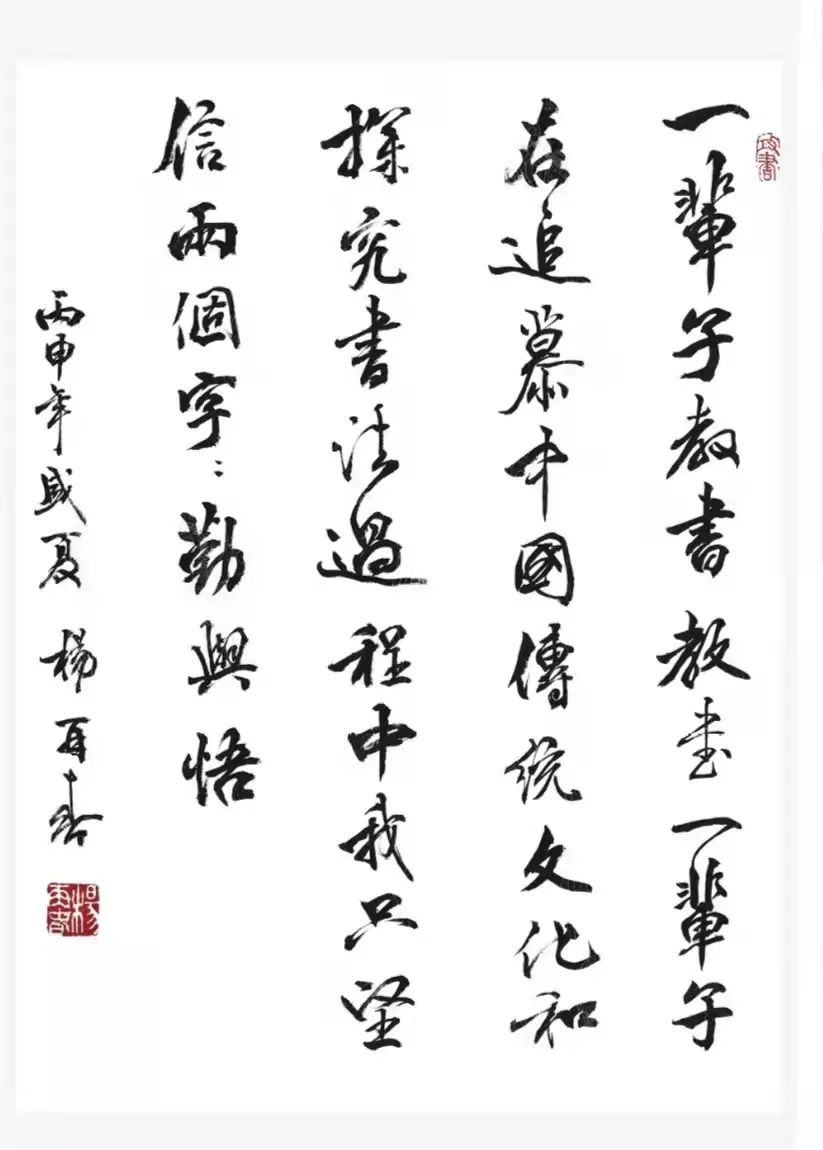 一輩子教書教書一輩子
在追慕中國傳統文化和
探究書法過程中我只堅
信兩個字：勤與悟
丙申年盛夏 楊再春